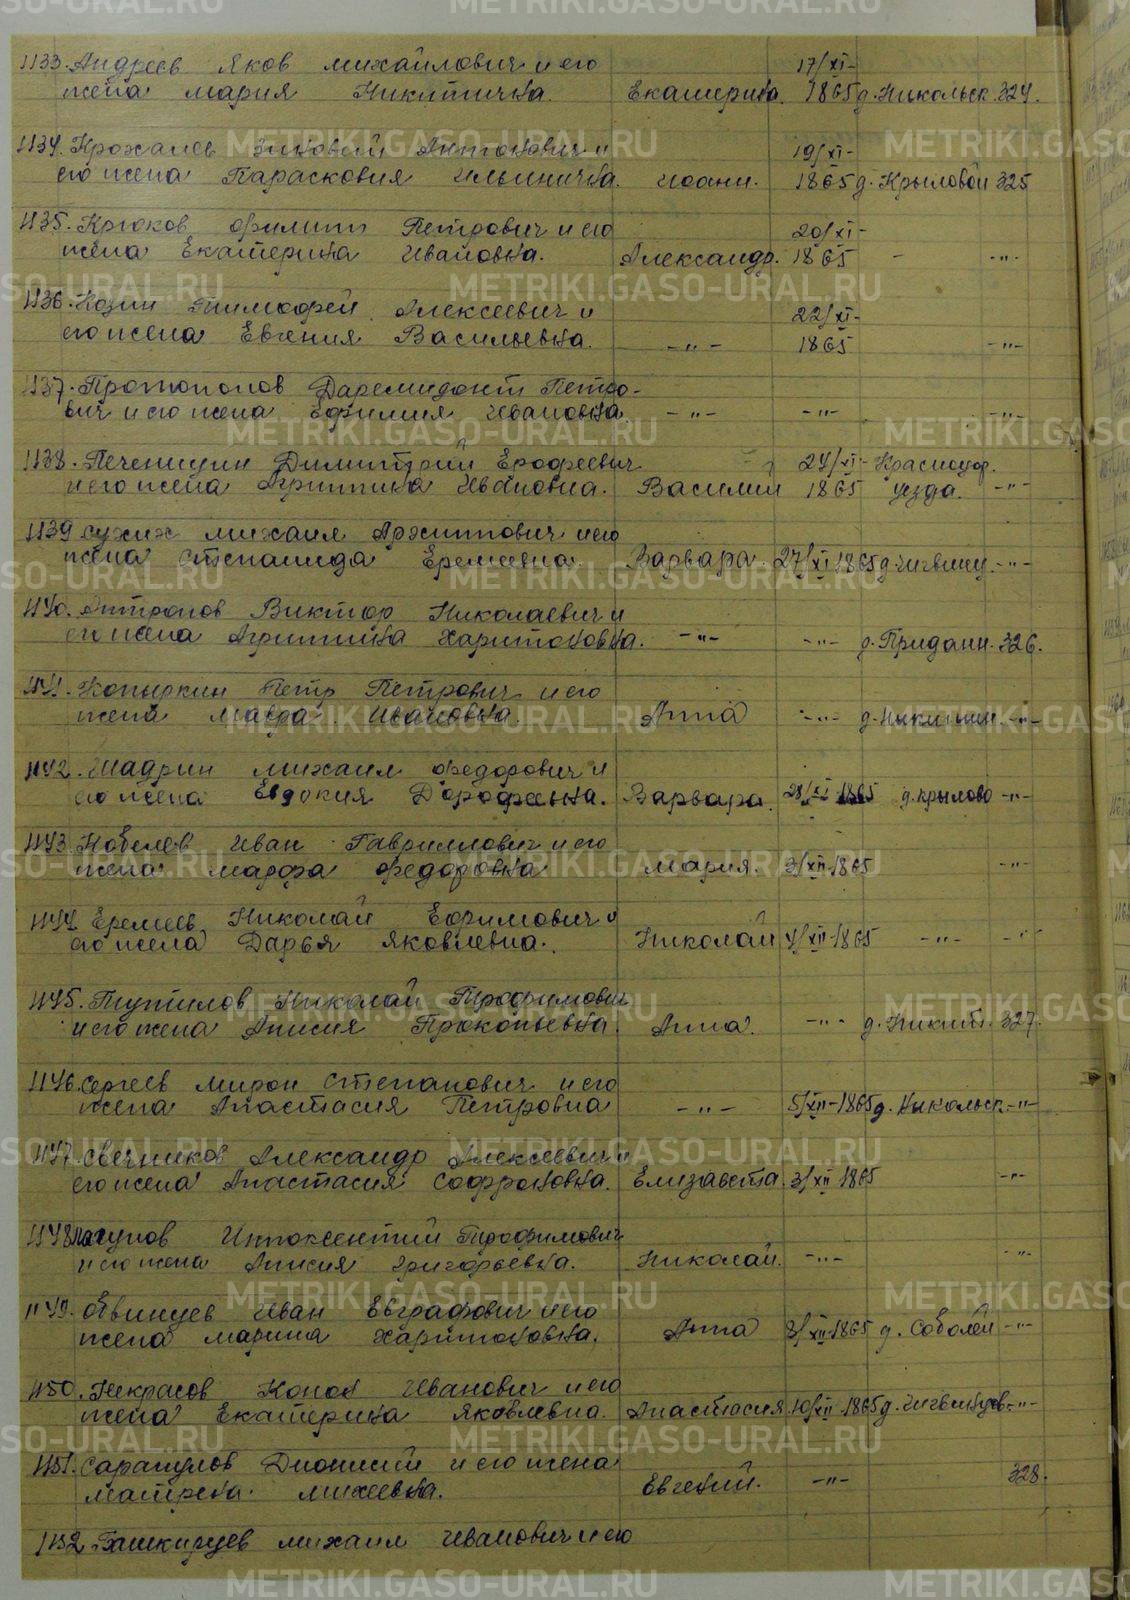 1133. Андреев Яков Михайлович и его 17/XI-
жена Мария Никитична. Екатерина. 1865 д. Никольск. 324.
1134. Крохалев Зиновий Антонович и 19/XI-
его жена Парасковия Ильинична. Иоанн. 1865 д. Крыловой 325
1135. Крюков Филипп Петрович и его 20/XI-
жена Екатерина Ивановна. Александр. 1865 - -"-
1136. Козин Тимофей Алексеевич и 22/XI-
его жена Евгения Васильевна. -"- 1865 -"-
1137. Протопопов Петро-
вич и его жена Ефимия Ивановна. -"- -"- -"-
1138. Печеницин Димитрий Ерофеевич 24/XI- Красноуф.
и его жена Агриппина Ивановна. Василий 1865 уезда. -"-
1139 Сухих Михаил Архиппович и его
жена Степанида Еремеевна. Варвара. 27/XI 1865 д. -"-
1140. Антропов Виктор Николаевич и
его жена Агриппина Харитоновна. -"- -"- д. Приданн. 326.
1141. Копыркин Петр Петрович и его
жена Мавра Ивановна. Анна -"- д. -"-
1142. Шадрин Михаил Федорович и
его жена Евдокия Дорофеевна. Варвара. 28/XI-1865 д. Крылово -"-
1143. Кобелев Иван Гавриилович и его
жена Марфа Федоровна Мария. 3/XII-1865 -"-
1144. Еремеев Николай Ефимович и
его жена Дарья Яковлевна. Николай 4/XII-1865 -"- -"-
1145. Тупилов Николай Трофимович
и его жена Анисия Прокопьевна. Анна. -"- д. Никит. 327.
1146. Сергеев Мирон Степанович и его
жена Анастасия Петровна -"- 5/XII-1865 д. Никольск. -"-
1147. Свечников Александр Алексеевич и
его жена Анастасия Софроновна. Елизавета. 3/XII-1865 -"-
1148. Иннокентий Трофимович
и его жена Анисия Григорьевна. Николай. -"- -"-
1149. Обвинцев Иван Евграфович и его
жена Марина Харитоновна. Анна 8/XII-1865 д. Соболей -"-
1150. Некрасов Конон Иванович и его
жена Екатерина Яковлевна. Анастасия 10/XII-1865 д. Чигвинцев. -"-
1151. Сарапулов Дионисий и его жена
Матрена Михеевна. Евгений. -"- 328.
1152. Башкирцев Михаил Иванович и его
METRIKI.GASO-URAL.RU